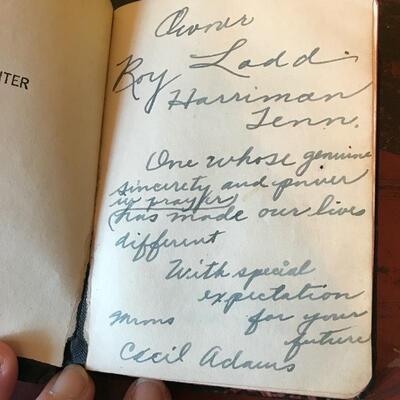 NTER
Owner
Roy Ladd
Harriman
Tenn.
One whose genuine
sincerety and power
in prayer
has made our lives
different
With special
expectation
for your
future
Cecil Adams